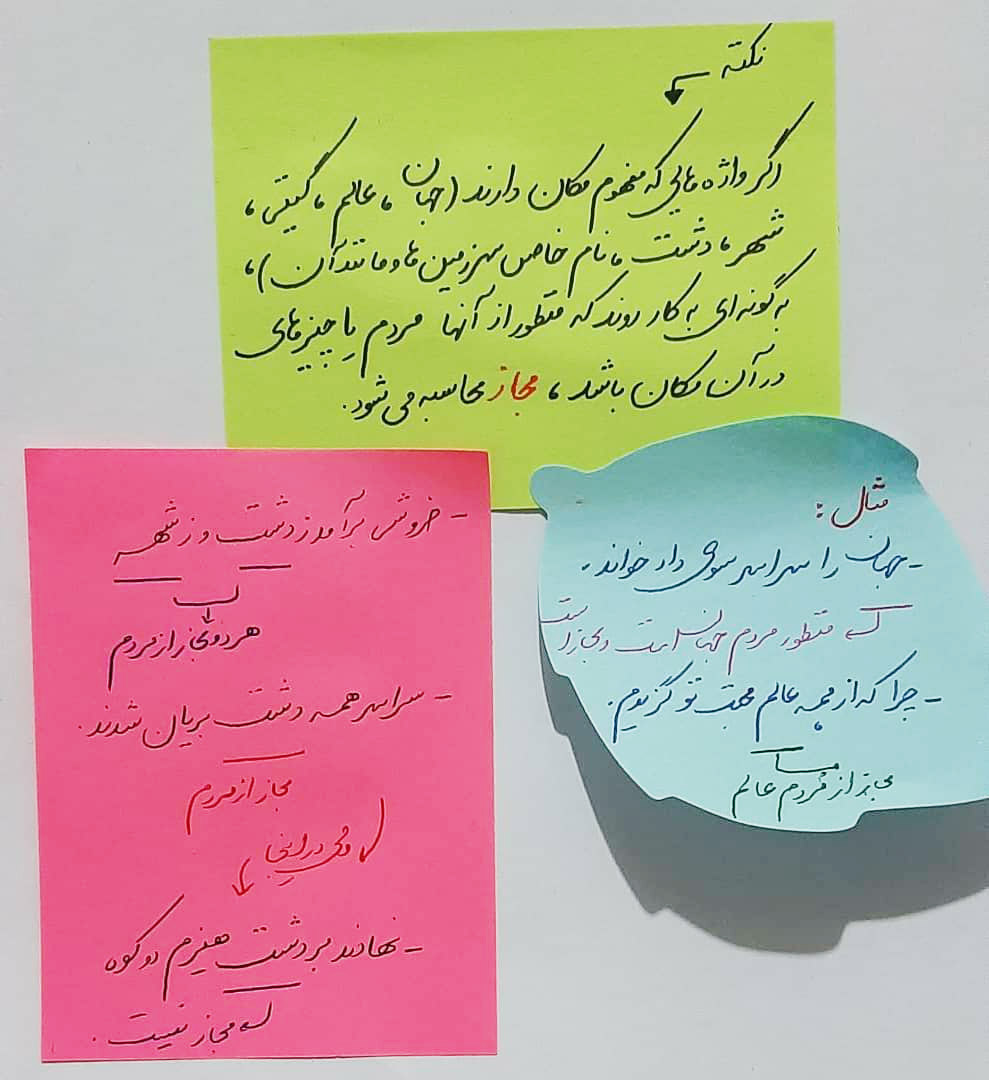 نکته
اگر واژه هایی که مفهوم مکان دارند (جهان، عالم، گیتی،
شهر، دشت، نام خاص سرزمین ها و مانند آن)،
به گونه ای به کار روند که منظور از آنها مردم یا چیزهای
در آن مکان باشد، مجاز محاسبه می شود.
مثال:
- جهان را سراسر سوی داد خواند.
منظور مردم جهان است و مجاز است
- چرا که از همه عالم محبت تو گزیدم.
مجاز از مردم عالم
- خروش برآمد ز دشت و ز شهر
هر دو مجاز از مردم
- سراسر همه دشت بریان شدند.
مجاز از مردم
ولی در اینجا
- نهادند بر دشت هیزم دو کوه
مجاز نیست.